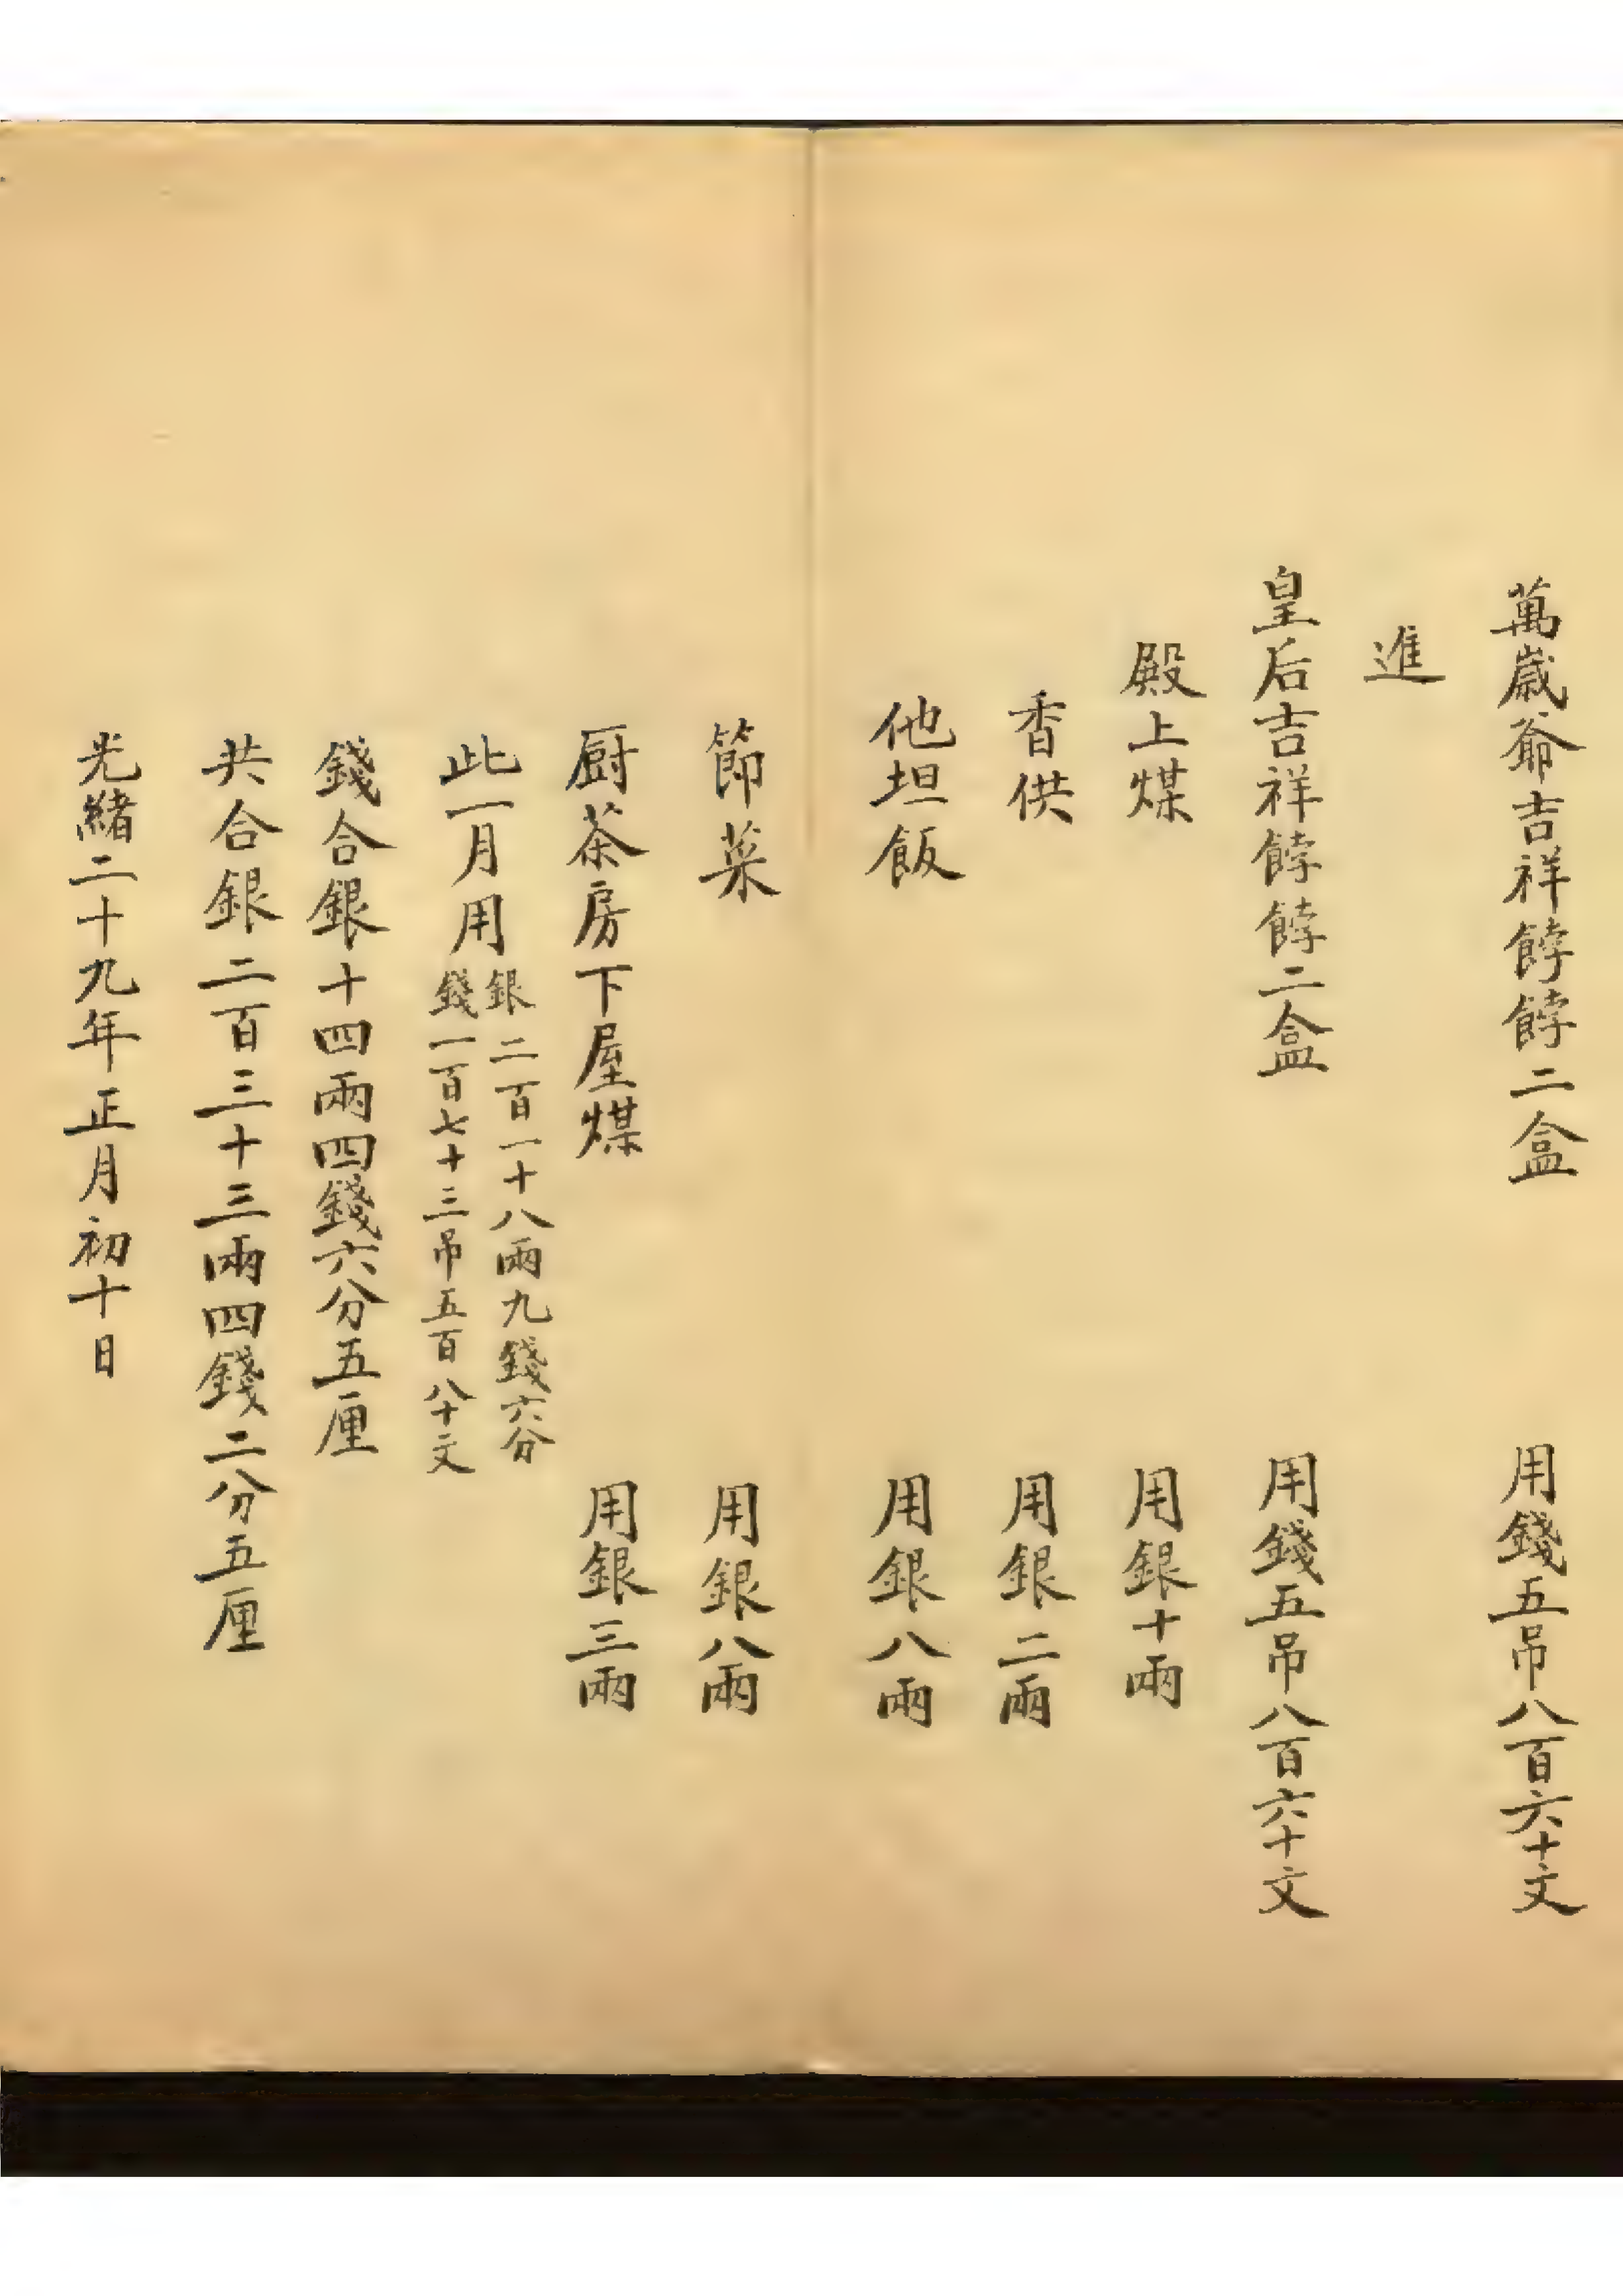 萬歲爺吉祥餑餑二盒 用錢五吊八百六十文
進
皇后吉祥餑餑二盒 用錢五吊八百六十文
殿上煤 用銀十兩
香供 用銀二兩
他坦飯 用銀八兩
節菜 用銀八兩
厨茶房下屋煤 用銀三兩
此一月用
銀二百一十八兩九錢六分
錢一百七十三吊五百八十文
錢合銀十四兩四錢六分五厘
共合銀二百三十三兩四錢二分五厘
光緒二十九年正月初十日